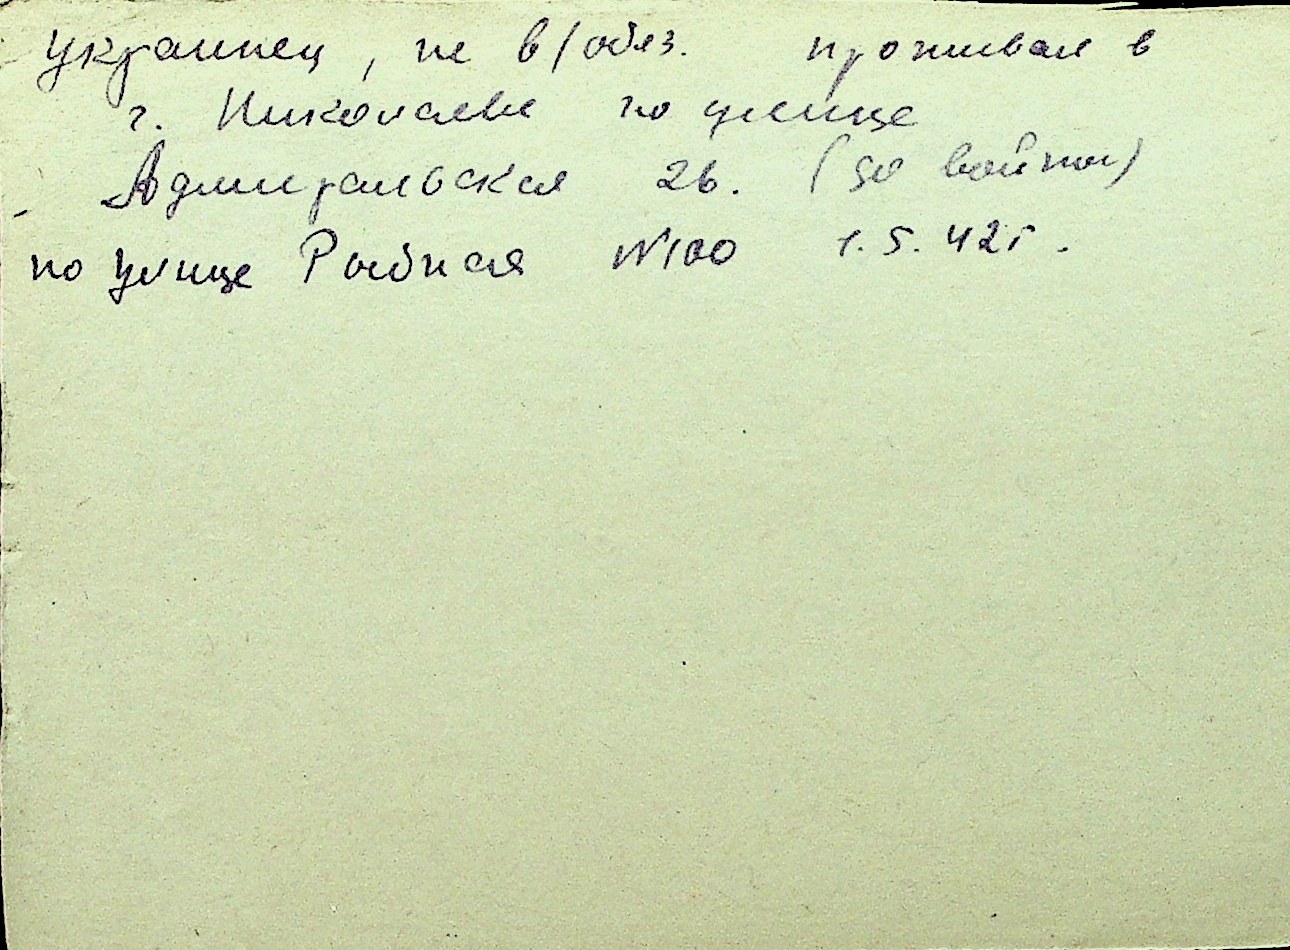 украинец, не в/обяз. проживал в
г. Николаеве по улице
Адмиральская 26. (до войны)
по улице Рыбная №100 1.5.42г.